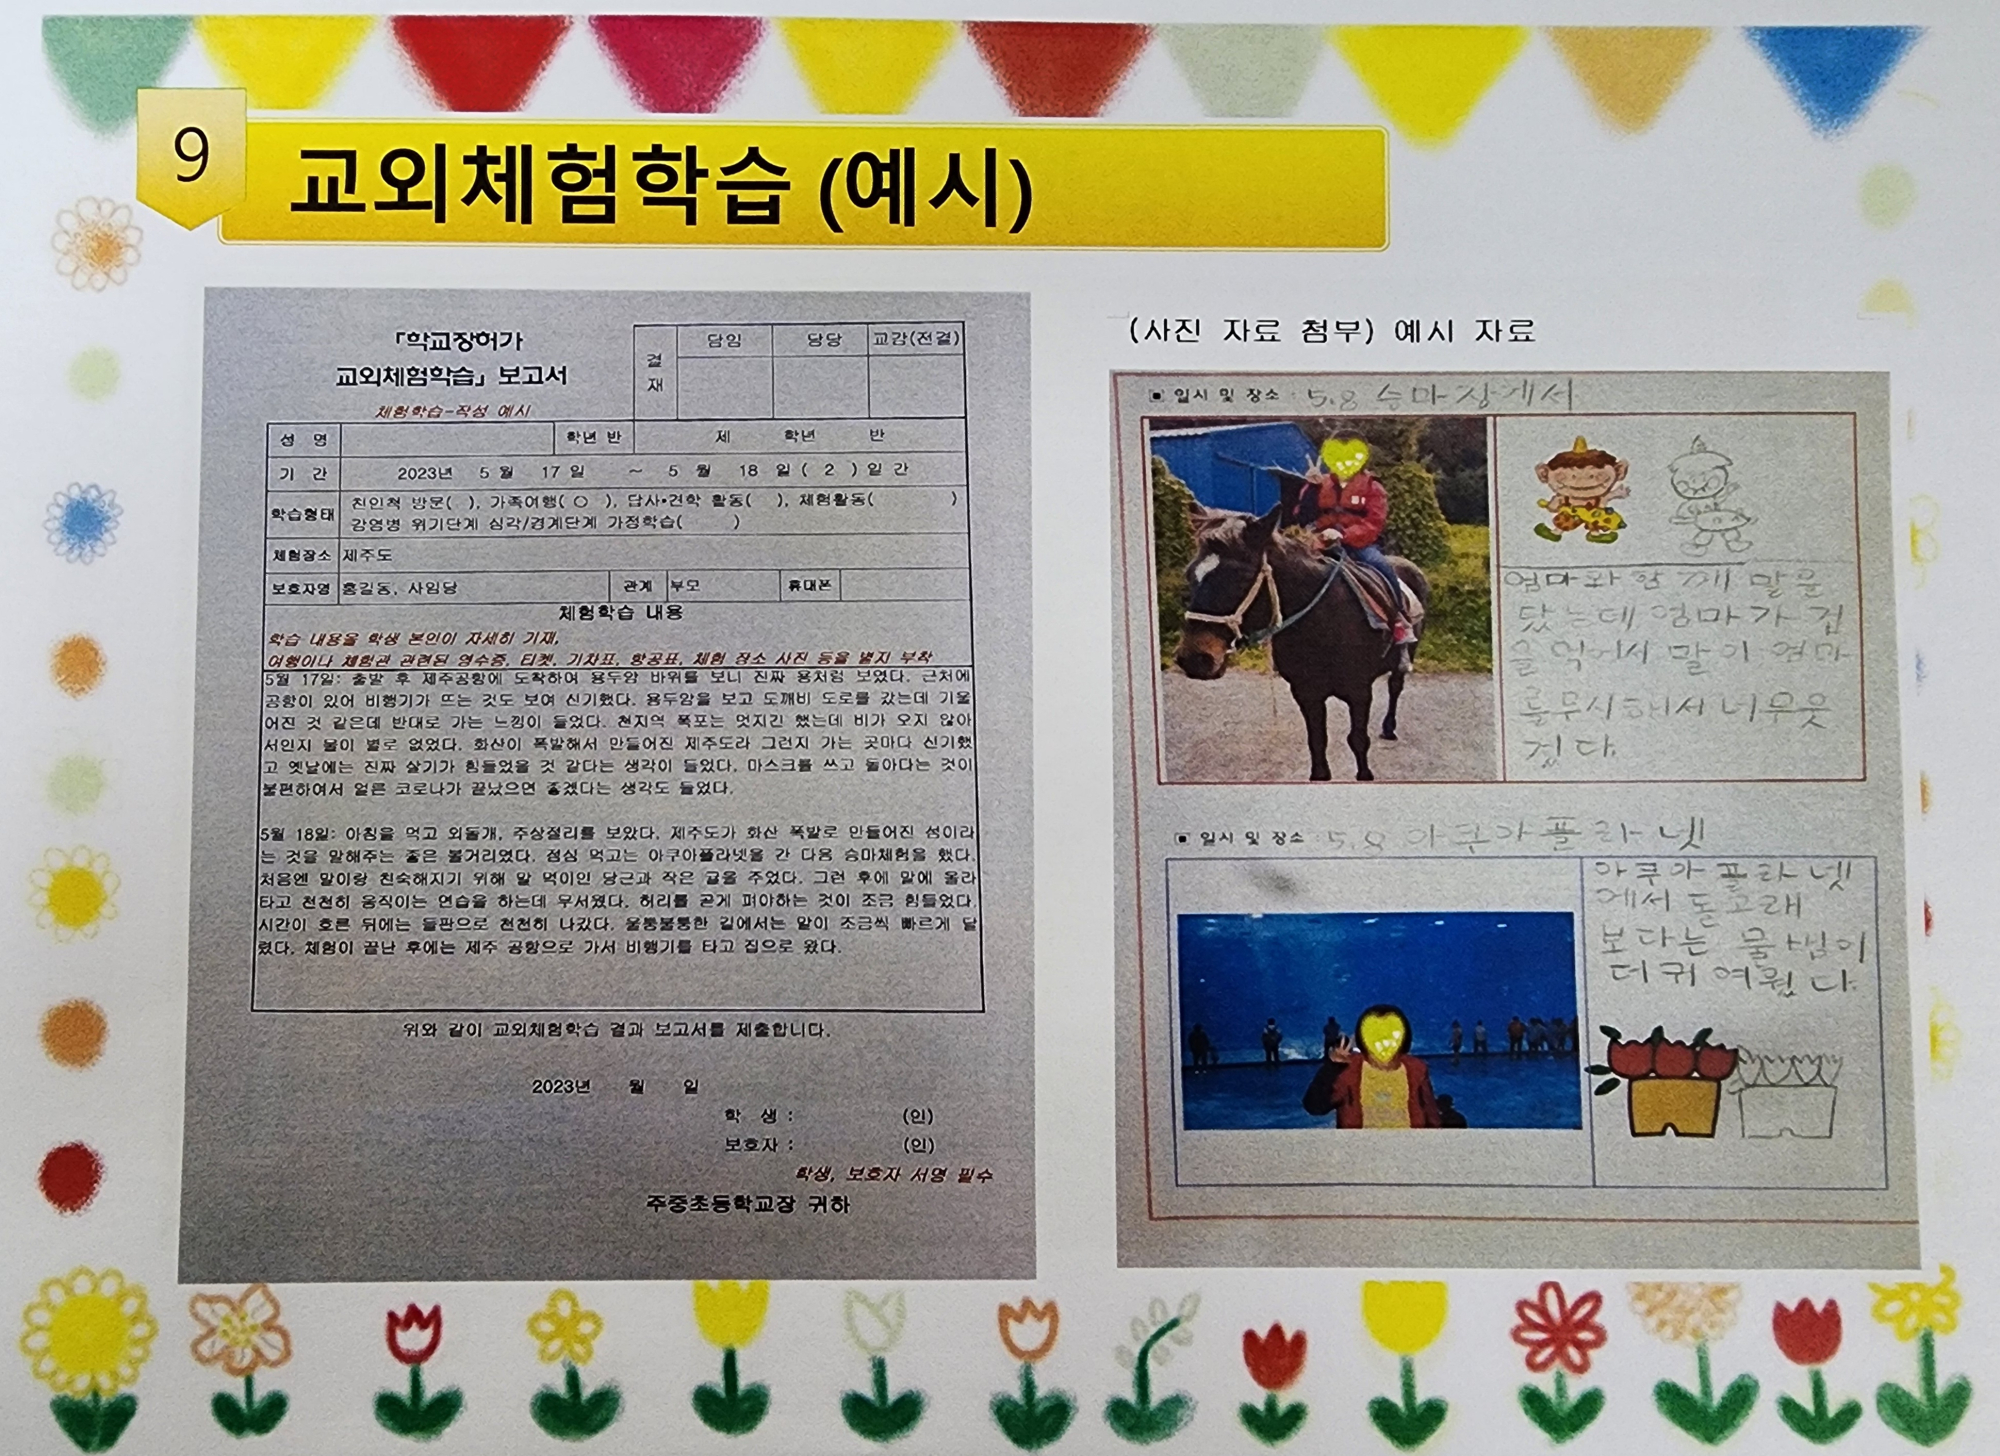 9
교외체험학습 (예시)
「학교장허가
교외체험학습」 보고서
체험학습-작성 예시
결
재
담임 담당 교감(전결)
성 명 학년 반 제 학년 반
기 간 2023년 5 월 17 일 ~ 5 월 18 일 ( 2 ) 일 간
학습형태 친인척 방문( ), 가족여행( ○ ), 답사•견학 활동( ), 체험활동( )
감염병 위기단계 심각/경계단계 가정학습( )
체험장소 제주도
보호자명 홍길동, 사임당 관계 부모 휴대폰
체험학습 내용
학습 내용을 학생 본인이 자세히 기재,
여행이나 체험관 관련된 영수증, 티켓, 기차표, 항공표, 체험 장소 사진 등을 별지 부착
5월 17일: 출발 후 제주공항에 도착하여 용두암 바위를 보니 진짜 용처럼 보였다. 근처에
공항이 있어 비행기가 뜨는 것도 보여 신기했다. 용두암을 보고 도깨비 도로를 갔는데 기울
어진 것 같은데 반대로 가는 느낌이 들었다. 천지역 폭포는 멋지긴 했는데 비가 오지 않아
서인지 물이 별로 없었다. 화산이 폭발해서 만들어진 제주도라 그런지 가는 곳마다 신기했
고 옛날에는 진짜 살기가 힘들었을 것 같다는 생각이 들었다. 마스크를 쓰고 돌아다는 것이
불편하여서 얼른 코로나가 끝났으면 좋겠다는 생각도 들었다.
5월 18일: 아침을 먹고 외돌개, 주상절리를 보았다. 제주도가 화산 폭발로 만들어진 섬이라
는 것을 말해주는 좋은 볼거리였다. 점심 먹고는 아쿠아플라넷을 간 다음 승마체험을 했다.
처음엔 말이랑 친숙해지기 위해 말 먹이인 당근과 작은 귤을 주었다. 그런 후에 말에 올라
타고 천천히 움직이는 연습을 하는데 무서웠다. 허리를 곧게 펴야하는 것이 조금 힘들었다.
시간이 흐른 뒤에는 들판으로 천천히 나갔다. 울퉁불퉁한 길에서는 말이 조금씩 빠르게 달
렸다. 체험이 끝난 후에는 제주 공항으로 가서 비행기를 타고 집으로 왔다.
위와 같이 교외체험학습 결과 보고서를 제출합니다.
2023년 월 일
학 생 : (인)
보호자 : (인)
학생, 보호자 서명 필수
주중초등학교장 귀하
(사진 자료 첨부) 예시 자료
▣ 일시 및 장소 : 5.8 승마장게서
엄마와 함께 말을
탔는데 엄마가 겁
을 먹어서 말이 엄마
를무시해서 너무웃
겼다.
▣ 일시 및 장소 : 5.8 아쿠아플라넷
아쿠아플라넷
에서 돌고래
보다는 물범이
더 귀여웠다.